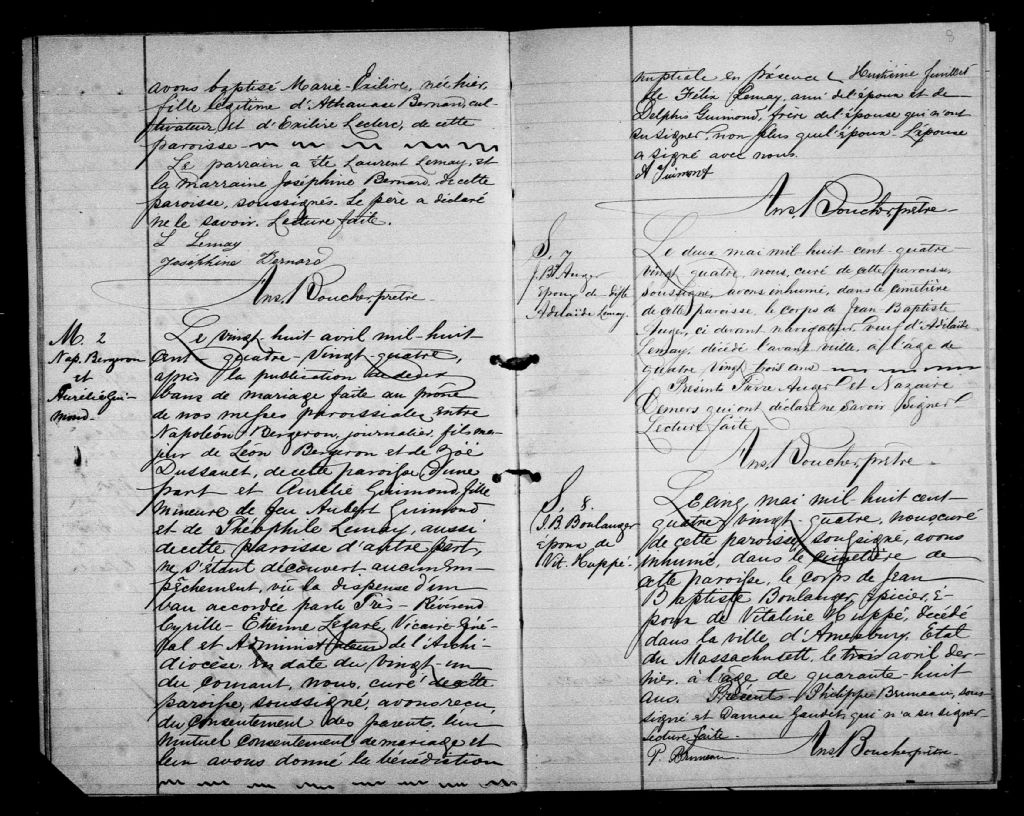 avons baptisé Marie-Exilire, née hier,
fille légitime d'Athanase Bernard, cul-
tivateur et d'Exilire Leclerc, de cette
paroisse
Le parrain a été Laurent Lemay, et
la marraine Joséphine Bernard, de cette
paroisse, soussignés. Le père a déclaré
ne le savoir. Lecture faite.
L Lemay
Joséphine Bernard
Ans. Boucher, prêtre
M. 2
Nap. Bergeron
et
Aurélie Gui-
mond
Le vingt-huit avril mil-huit
cent-quatre-vingt-quatre,
après la publication de deux
bans de mariage faite au prône
de nos messes paroissiales entre
Napoléon Bergeron, journalier, fils ma-
jeur de Léon Bergeron et de Zoë
Dussault, de cette paroisse d'une
part et Aurélie Guimond, fille
mineure de feu Aubert Guimond
et de Théophile Lemay, aussi
de cette paroisse d'autre part,
ne s'étant découvert aucun em-
pêchement, vu la dispense d'un
ban accordée par le Très-Révérend
Cyrille-Etienne Legaré, Vicaire Géné-
ral et Administrateur de l'Archi-
diocèse, en date du vingt-un
du courant, nous, curé de cette
paroisse, soussigné, avons reçu,
du consentement des parents, leur
mutuel consentement de mariage et
leur avons donné la bénédiction
8
nuptiale en présence
de Félix Lemay, ami de l'époux et de
Delphis Guimond, frère de l'épouse qui n'ont
su signer, non plus que l'époux. L'épouse
a signé avec nous.
A Guimont
Ans. Boucher, prêtre
S. 7
J. Bte Auger
époux de dfte
Adélaïde Lemay.
Le deux mai mil huit cent-quatre
vingt quatre, nous, curé de cette paroisse,
soussigné, avons inhumé, dans le cimetière
de cette paroisse, le corps de Jean Baptiste
Auger, ci devant navigateur, veuf d'Adélaïde
Lemay, décédé l'avant veille, à l'âge de
quatre vingt trois ans
Présents Auger et Nazaire
Demers qui ont déclaré ne savoir signer
Lecture faite
Ans. Boucher, prêtre
S. 8.
J. B. Boulanger
époux de
Vit. Huppé.
Le cinq mai mil huit cent-
quatre vingt-quatre, nous curé
de cette paroisse, soussigné, avons
inhumé, dans le cimetière de
cette paroisse, le corps de Jean
Baptiste Boulanger, épicier, é-
poux de Vitaline Huppé, décédé
dans la ville d'Amesbury, Etat
du Massachusett, le trois avril der-
nier, à l'âge de quarante-huit
ans. Présents Philippe Bruneau, sous-
signé et Damase qui n'a su signer
Lecture faite.
P. Bruneau
Ans. Boucher, prêtre